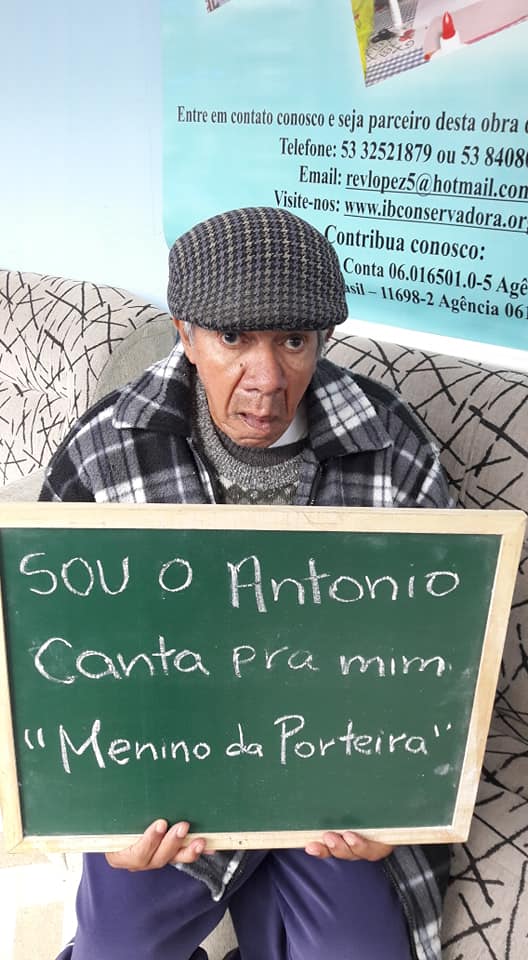 Entre em contato conosco e seja parceiro desta obra
Telefone: 53 32521879 ou 53 8408
Email: revlopez5@hotmail.com
Visite-nos: www.ibconservadora.org
Contribua conosco:
Conta 06.016501.0-5 Agê
asil – 11698-2 Agência 061
SOU O Antonio
Canta pra mim
"Menino da Porteira"